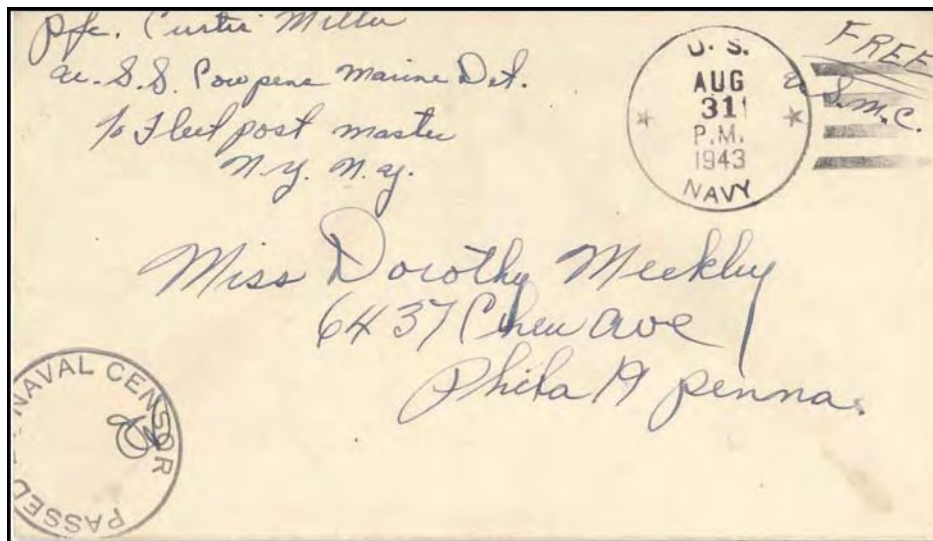 Pfc. Curtis Miller
U.S.S. Cowpens Marine Det.
℅ Fleet post master
N.Y. N.Y.
U. S.
AUG
31
P.M.
1943
NAVY
FREE
U.S.M.C.
Miss Dorothy Meckley
6437 Chew Ave
Phila 19 penna.
PASSED NAVAL CENSOR